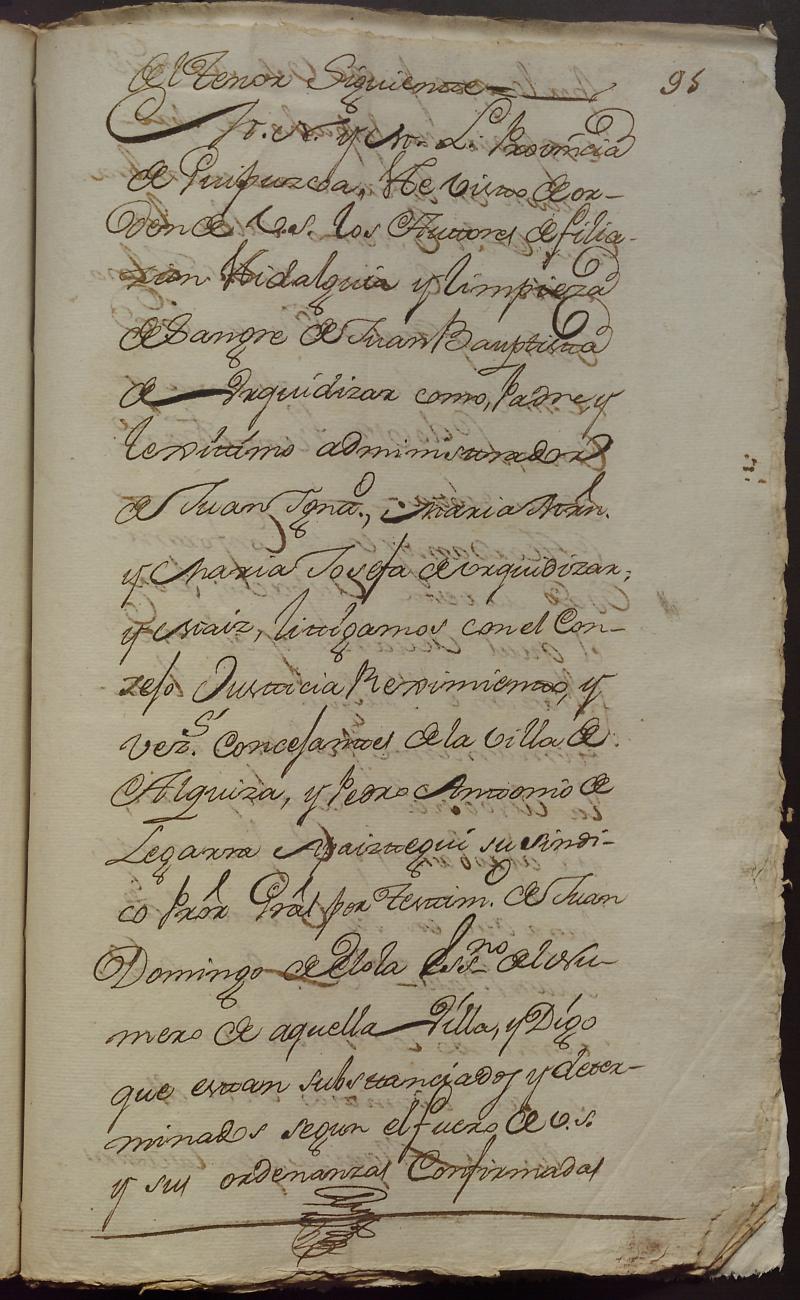 95
el tenor siguiente
M. N. y M. L. Provincia
de Guipuzcoa, He visto de or-
den de V.s. los Auttores de filia-
zion Hidalguia y limpieza
de Sangre de Juan Bauptista
de Urquidizar como Padre, y
lexittimo administtrador
de Juan Ygnaº., Maria
y Maria Josefa de Urquidizar,
y littigamos con el Con-
zejo Justticia Reximientto, y
vez.s Concejantes de la villa de
Alquiza, y Pedro Antonio de
Legarra su sindi-
co Prõr Grâl por Testtim.º de Juan
Domingo de Elola Ess.no del Nu-
mero de aquella Villa, y Digo
que esttan substtanciados y deter-
minados segun el fuero de V.s.
y sus ordenanzas Confirmadas